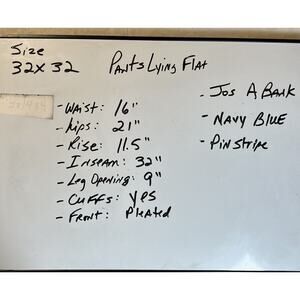 Size
32x32
Pants Lying Flat
- Waist: 16"
- hips: 21"
- Rise: 11.5"
- Inseam: 32"
- Leg Opening: 9"
- Cuffs: yes
- Front: Pleated
- Jos A Bank
- Navy Blue
- Pinstripe